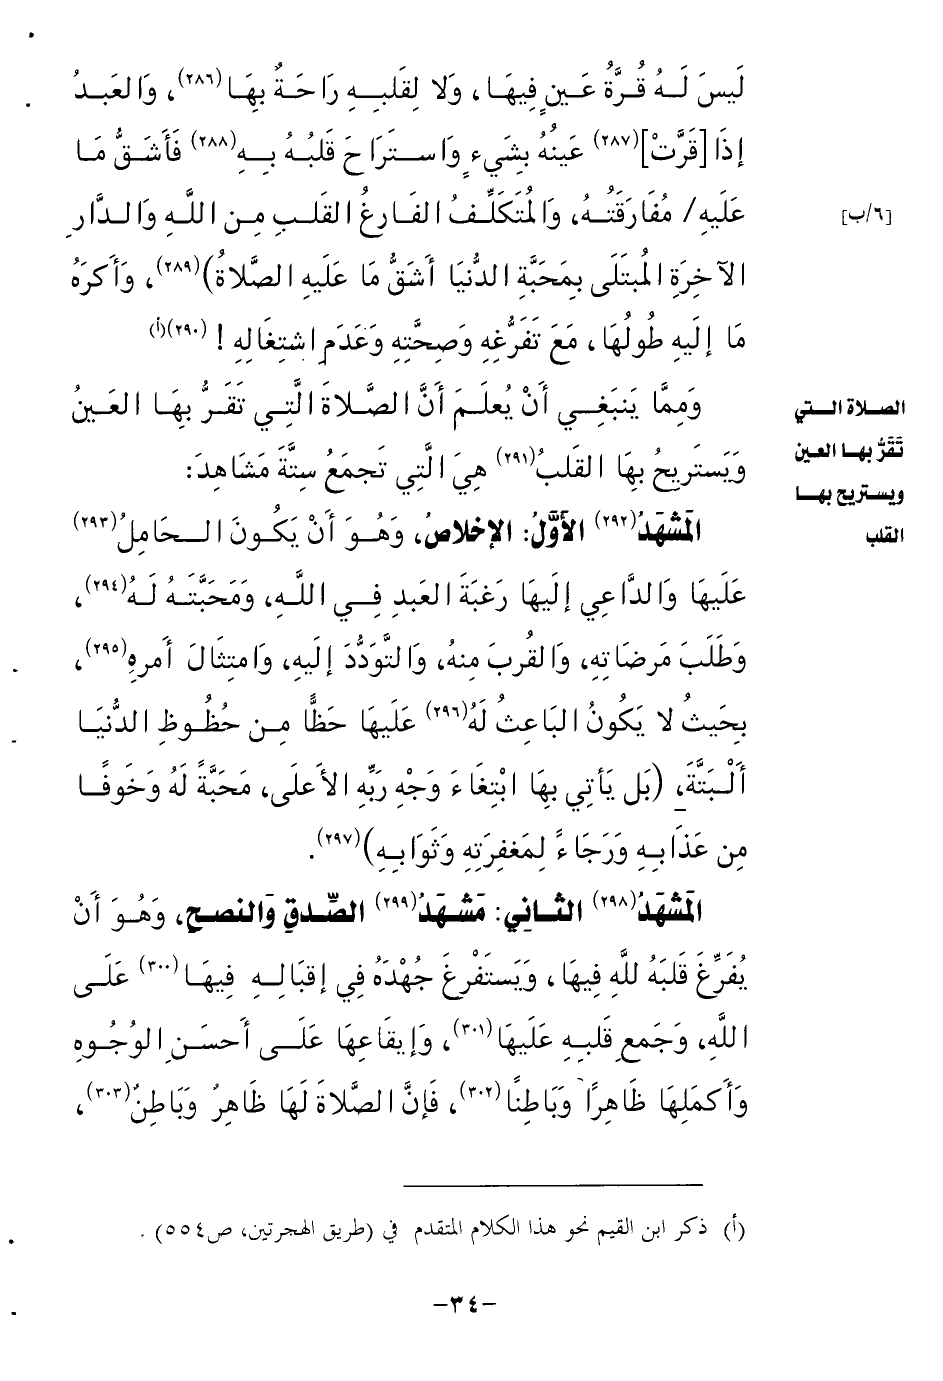 لَيسَ لَـهُ قُرَّةُ عَـينٍ فِيهَـا، وَلا لِقَلبِـهِ رَاحَـةٌ بِهَـا(٢٨٦)، وَالعَبـدُ
إِذَا [قَرَّتْ](٢٨٧) عَينُهُ بِشَيءٍ وَاسـتَرَاحَ قَلبُـهُ بِـهِ(٢٨٨) فَأَشَـقُّ مَـا
عَلَيهِ/ مُفَارَقَتُـهُ، وَالمُتَكَلِّـفُ الفَـارِغُ القَلـبِ مِـن اللَّـهِ وَالـدَّارِ
[٦/ب]
الآخِرَةِ المُبتَلَى بِمَحَبَّةِ الدُّنيَا أَشَقُّ مَا عَلَيهِ الصَّلاةُ)(٢٨٩)، وَأَكرَهُ
مَا إِلَيهِ طُولُهَا، مَعَ تَفَرُّغِهِ وَصِحَّتِهِ وَعَدَمِ اشتِغَالِهِ ! (٢٩٠)(أ)
وَمِمَّا يَنبَغِـي أَنْ يُعلَـمَ أَنَّ الصَّـلاةَ الَّتِـي تَقَرُّ بِهَـا العَينُ
وَيَستَرِيحُ بِهَا القَلبُ(٢٩١) هِيَ الَّتِي تَجمَعُ سِتَّةَ مَشَاهِدَ:
الصـلاة الـتي
تَقَرُّ بهـا العين
ويستريح بهـا
القلب
المَشهَدُ(٢٩٢) الأَوَّلُ: الإِخلاصُ، وَهُـوَ أَنْ يَكُـونَ الـحَامِلُ(٢٩٣)
عَلَيهَا وَالدَّاعِي إِلَيهَا رَغبَةَ العَبدِ فِـي اللَّـهِ، وَمَحَبَّتَـهُ لَـهُ(٢٩٤)،
وَطَلَبَ مَرضَاتِهِ، وَالقُربَ مِنهُ، وَالتَّوَدُّدَ إِلَيهِ، وَامتِثَالَ أَمرِهِ(٢٩٥)،
بِحَيثُ لا يَكُونُ البَاعِثُ لَهُ(٢٩٦) عَلَيهَا حَظًّا مِـن حُظُـوظِ الدُّنيَـا
أَلْبَتَّةَ، (بَل يَأتِي بِهَا ابْتِغَاءَ وَجْهِ رَبِّهِ الأَعلَى، مَحَبَّةً لَهُ وَخَوفًـا
مِن عَذَابِـهِ وَرَجَاءً لِمَغفِرَتِهِ وَثَوَابِـهِ)(٢٩٧).
المَشهَدُ(٢٩٨) الثـانِي: مَشـهَدُ(٢٩٩) الصِّدقِ وَالنصحِ، وَهُـوَ أَنْ
يُفَرِّغَ قَلبَهُ للَّهِ فِيهَا، وَيَستَفْرِغَ جُهْدَهُ فِي إِقبَالِـهِ فِيهَـا(٣٠٠) عَلَـى
اللَّهِ، وَجَمعِ قَلبِـهِ عَلَيهَا(٣٠١)، وَإِيقَاعِهَا عَلَـى أَحسَـنِ الوُجُـوهِ
وَأَكمَلِهَا ظَاهِرًا وَبَاطِنًا(٣٠٢)، فَإِنَّ الصَّلاةَ لَهَا ظَاهِرٌ وَبَاطِنٌ(٣٠٣)،
(أ) ذكر ابن القيم نحو هذا الكلام المتقدم في (طريق الهجرتين، ص٥٥٤).
-٣٤-